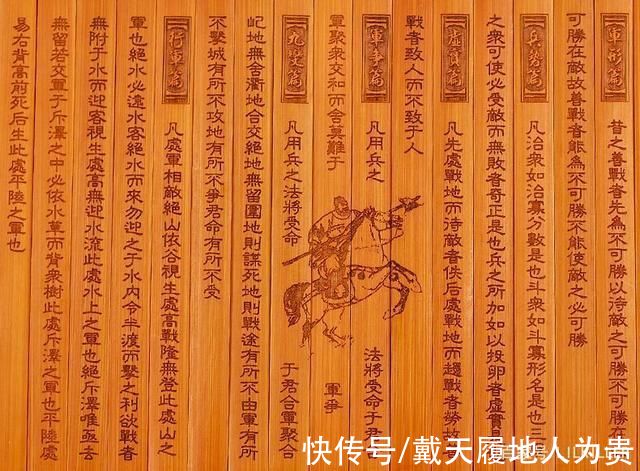 軍形篇 昔之善戰者先為不可勝以待敵之可勝不可勝在
可勝在敵故善戰者能為不可勝不能使敵之必可勝
兵勢篇 凡治衆如治寡分數是也斗衆如斗寡形名是也三
之衆可使必受敵而無敗者奇正是也兵之所加如以投卵者虛實
虛實篇 凡先處戰地而待敵者佚后處戰地而趨戰者勞故
戰者致人而不致于人
軍爭篇 凡用兵之 法將受命于君
軍聚衆交和而舍莫難于 軍爭
九變篇 凡用兵之法將受命 于君合軍聚合
圮地無舍衢地合交絕地無留圍地則謀死地則戰途有所不由軍有所
不擊城有所不攻地有所不爭君命有所不受
行軍篇 凡處軍相敵絕山依谷視生處高戰隆無登此處山之
軍也絕水必遠水客絕水而來勿迎之于水內令半渡而擊之利欲戰者
無附于水而迎客視生處高無迎水流此處水上之軍也絕斥澤唯亟去
無留若交軍于斥澤之中必依水草而背衆樹此處斥澤之軍也平陸處
易右背高前死后生此處平陸之軍也
快传号/戴天履地人为贵